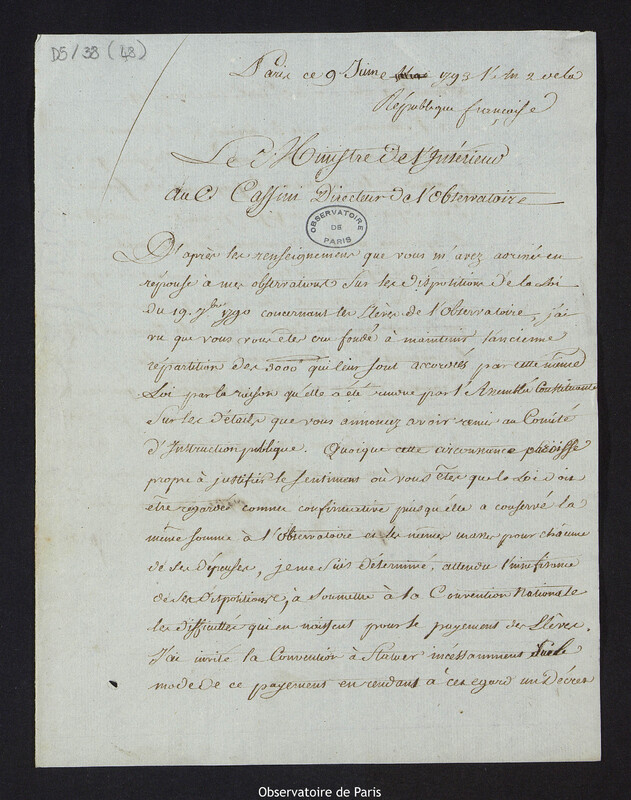 D5/38 (48)
Paris ce 9 Juin 1793 l'an 2 de la
République françoise
Le Ministre de l'Intérieur
au C. Cassini Directeur de l'Observatoire
OBSERVATOIRE DE PARIS
D'après les renseignemens que vous m'avez donné en
réponse à mes observations sur les dispositions de la Loi
du 19. 7bre 1790 concernant les Elèves de l'Observatoire, j'ai
vu que vous vous etes cru fondé à maintenir l'ancienne
répartition des 3000 qui leur sont accordés par cette même
Loi par la raison qu'elle a été rendue par l'Assemblée Constituante
sur les détails que vous annoncez avoir remis au Comité
d'Instruction publique. Quoique cette circonstance paroisse
propre à justifier le sentiment où vous êtes que la Loi doit
être regardée comme confirmative puisqu'elle a conservé la
même somme à l'Observatoire et les mêmes masses pour chacune
de ses dépenses, je me suis déterminé, attendu l'insuffisance
de ses dispositions, à soumettre à la Convention Nationale
les difficultés qui en naissent pour le payement des Elèves.
J'ai invité la Convention à statuer incessamment sur le
mode de ce payement en rendant à cet égard un Décret
Observatoire de Paris